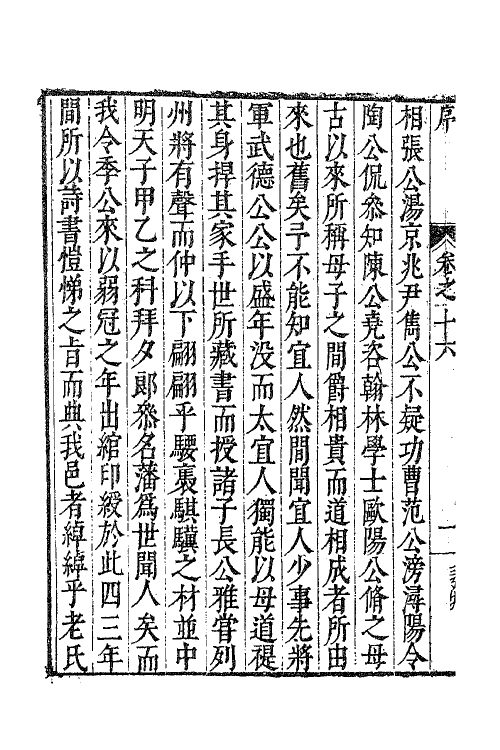 序 卷之二十六 一
相張公湯京兆尹雋公不疑功曹范公滂潯陽令
陶公侃叅知陳公堯咨翰林學士歐陽公脩之母
古以來所稱母子之間爵相貴而道相成者所由
來也舊矣予不能知宜人然間聞宜人少事先將
軍武德公公以盛年没而太宜人獨能以母道禔
其身捍其家手世所藏書而授諸子長公雅嘗列
州將有聲而仲以下翩翩乎騕褭騏驥之材並中
明天子甲乙之科拜夕郎叅名藩爲世聞人矣而
我令季公來以弱冠之年出綰印綬於此四三年
間所以詩書愷悌之㫖而與我邑者綽綽乎老氏